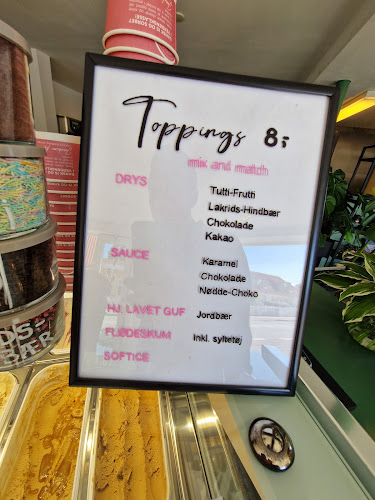 Toppings 8,-
mix and match
DRYS
Tutti-Frutti
Lakrids-Hindbær
Chokolade
Kakao
SAUCE
Karamel
Chokolade
Nødde-Choko
HJ. LAVET GUF Jordbær
FLØDESKUM Inkl. syltetøj
SOFTICE